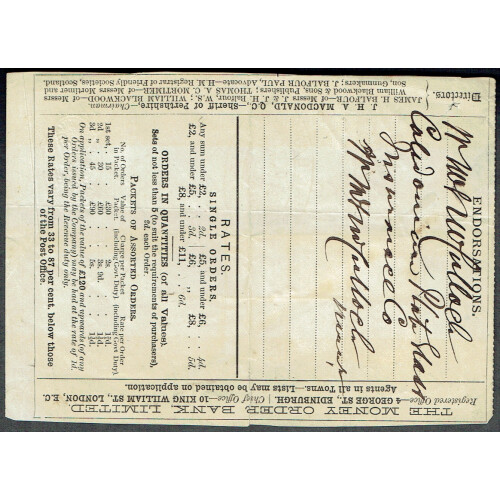 THE MONEY ORDER BANK, LIMITED.
Registered Office—4 GEORGE ST., EDINBURGH. | Chief Office—10 KING WILLIAM ST., LONDON, E.C.
Agents in all Towns.—Lists may be obtained on application.
ENDORSATIONS.
Caledonian Plate Glass
Insurance Co
RATES.
SINGLE ORDERS.
Any sum under £2, . . 2d.
£2, and under £5, . . 3d.
£5, and under £6, . . 4d.
£6, „ £8, . . 5d.
£8, and under £11, . . 6d.
ORDERS IN QUANTITIES (of all Values).
Sets (of not less than 5) to suit the requirements of purchasers,
2d. each Order.
PACKETS OF ASSORTED ORDERS.
No. of Orders in Packet. Value of Packet. Charge per Packet (including Govt. Duty). Rate per Order (including Govt. Duty).
1st set, . 15 . £30 . 2s. . 1½d.
2d „ . 30 . £30 . 3s. 9d. . 1½d.
3d „ . 45 . £30 . 5s. . 1½d.
On application, Packets of the value of £120 and upwards (of any
Orders issued by the Company) may be had at the rate of 1d.
per Order, being the Revenue duty only.
These Rates vary from 33 to 87 per cent. below those
of the Post Office.
Directors.
J. H. A. MACDONALD, Q.C., Sheriff of Perthshire,—Chairman.
JAMES H. BALFOUR—of Messrs J. & J. H. Balfour, W.S.; WILLIAM BLACKWOOD—of Messrs
William Blackwood & Sons, Publishers; THOMAS A. C. MORTIMER—of Messrs Mortimer and
Son, Gunmakers; J. BALFOUR PAUL, Advocate—H.M. Registrar of Friendly Societies, Scotland.